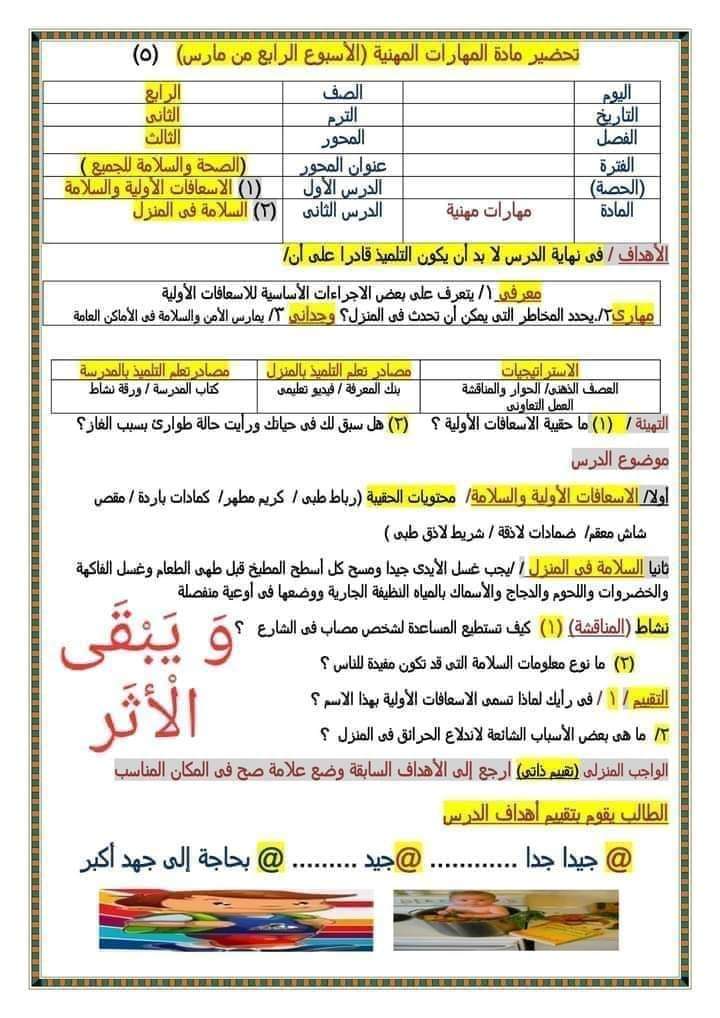 تحضير مادة المهارات المهنية (الأسبوع الرابع من مارس) (٥)
اليوم الصف الرابع
التاريخ الترم الثانى
الفصل المحور الثالث
الفترة عنوان المحور (الصحة والسلامة للجميع )
(الحصة) الدرس الأول (١) الاسعافات الأولية والسلامة
المادة مهارات مهنية الدرس الثانى (٢) السلامة فى المنزل
الأهداف / فى نهاية الدرس لا بد أن يكون التلميذ قادرا على أن/
معرفى ١/ يتعرف على بعض الاجراءات الأساسية للاسعافات الأولية
مهارى٢/.يحدد المخاطر التى يمكن أن تحدث فى المنزل؟ وجدانى ٣/ يمارس الأمن والسلامة فى الأماكن العامة
الاستراتيجيات مصادر تعلم التلميذ بالمنزل مصادرتعلم التلميذ بالمدرسة
العصف الذهنى/ الحوار والمناقشة بنك المعرفة / فيديو تعليمى كتاب المدرسة / ورقة نشاط
العمل التعاونى
التهيئة / (١) ما حقيبة الاسعافات الأولية ؟ (٢) هل سبق لك فى حياتك ورأيت حالة طوارئ بسبب الغاز؟
موضوع الدرس
أولا/ الاسعافات الأولية والسلامة/ محتويات الحقيبة (رباط طبى / كريم مطهر/ كمادات باردة / مقص
شاش معقم/ ضمادات لاذقة / شريط لاذق طبى )
ثانيا السلامة فى المنزل / /يجب غسل الأيدى جيدا ومسح كل أسطح المطبخ قبل طهى الطعام وغسل الفاكهة
والخضروات واللحوم والدجاج والأسماك بالمياه النظيفة الجارية ووضعها فى أوعية منفصلة
نشاط (المناقشة) (١) كيف تستطيع المساعدة لشخص مصاب فى الشارع ؟
(٢) ما نوع معلومات السلامة التى قد تكون مفيدة للناس ؟
التقييم / ١ / فى رأيك لماذا تسمى الاسعافات الأولية بهذا الاسم ؟
٢/ ما هى بعض الأسباب الشائعة لاندلاع الحرائق فى المنزل ؟
وَ يَبْقَى
الْأَثَر
الواجب المنزلى (تقييم ذاتى) ارجع إلى الأهداف السابقة وضع علامة صح فى المكان المناسب
الطالب يقوم بتقييم أهداف الدرس
@ جيدا جدا ............ @جيد ......... @ بحاجة إلى جهد أكبر